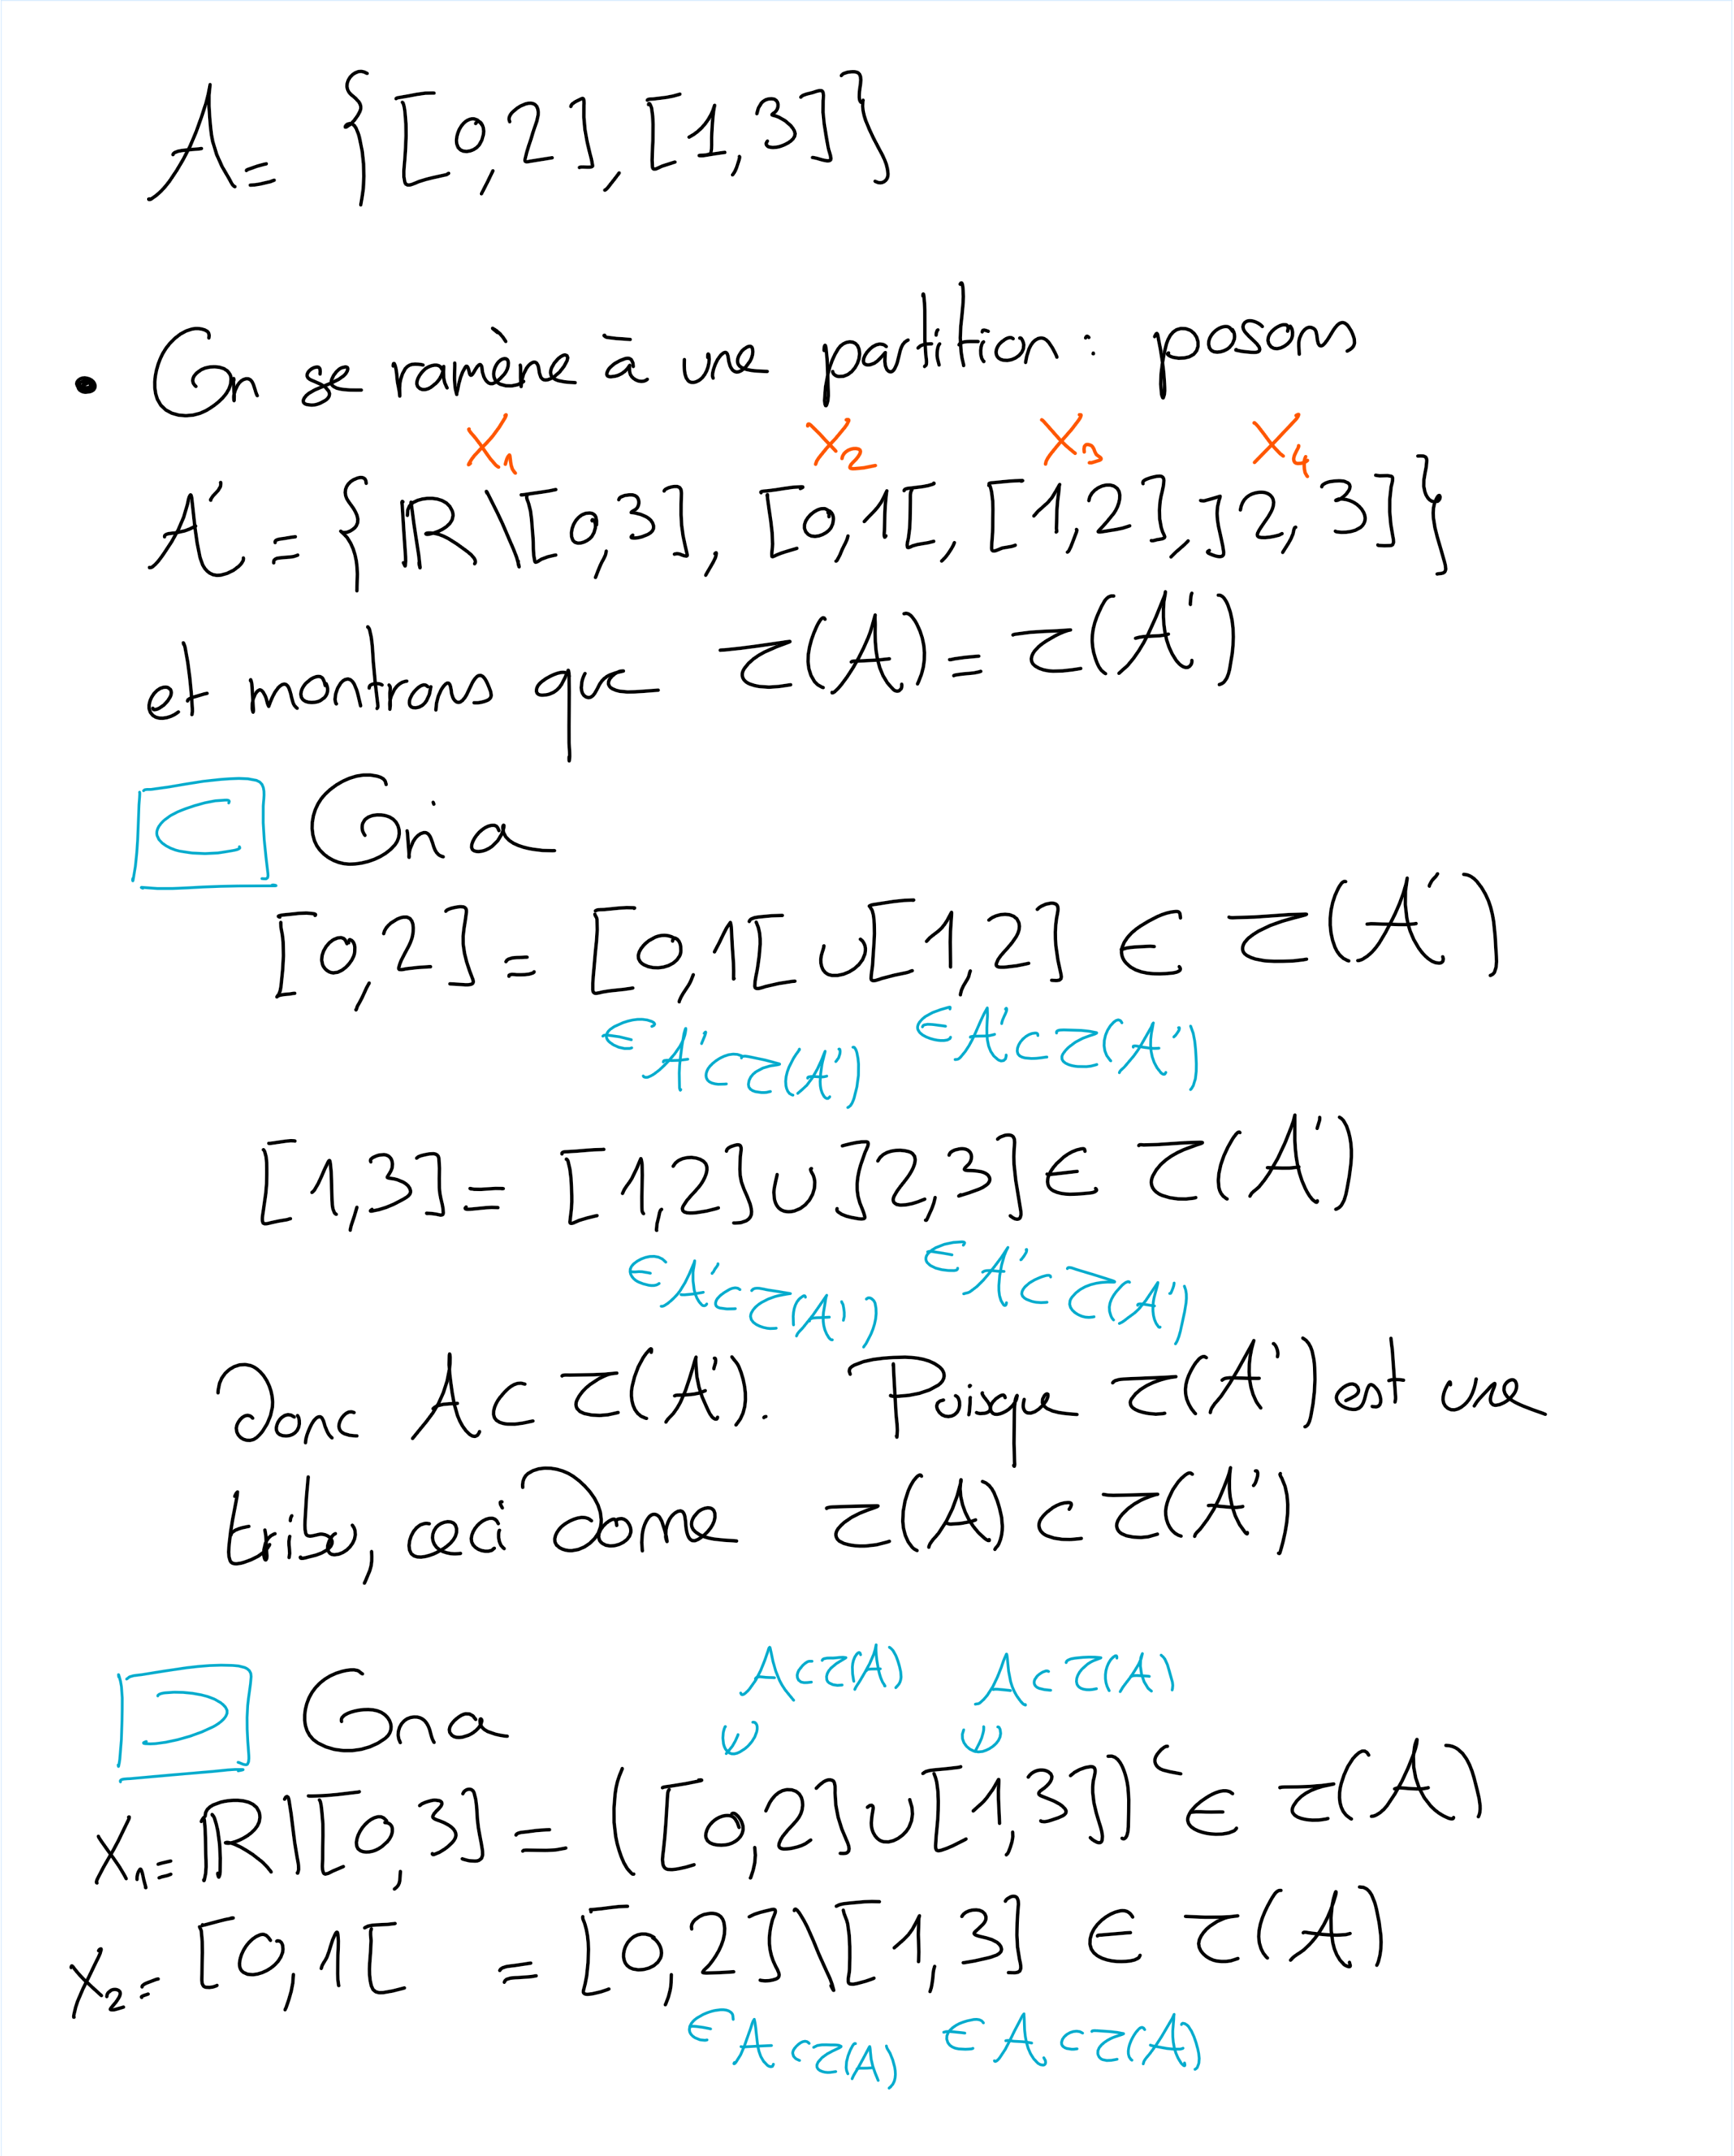 A = {[0,2], [1,3]}
• On se ramène à une partition : posons
X₁ X₂ X₃ X₄
A' = {ℝ\[0,3], [0,1[, [1,2], ]2,3]}
et montrons que τ(A) = τ(A')
⊂ On a
[0,2] = [0,1[ ∪ [1,2] ∈ τ(A')
∈ A' ⊂ τ(A') ∈ A' ⊂ τ(A')
[1,3] = [1,2] ∪ ]2,3] ∈ τ(A')
∈ A' ⊂ τ(A') ∈ A' ⊂ τ(A')
Donc A ⊂ τ(A'). Puisque τ(A') est une
tribu, ceci donne τ(A) ⊂ τ(A')
A ⊂ τ(A) A ⊂ τ(A)
⊃ On a
X₁ = ℝ\[0,3] = ([0,2] ∪ [1,3])ᶜ ∈ τ(A)
X₂ = [0,1[ = [0,2]\[1,3] ∈ τ(A)
∈ A ⊂ τ(A) ∈ A ⊂ τ(A)